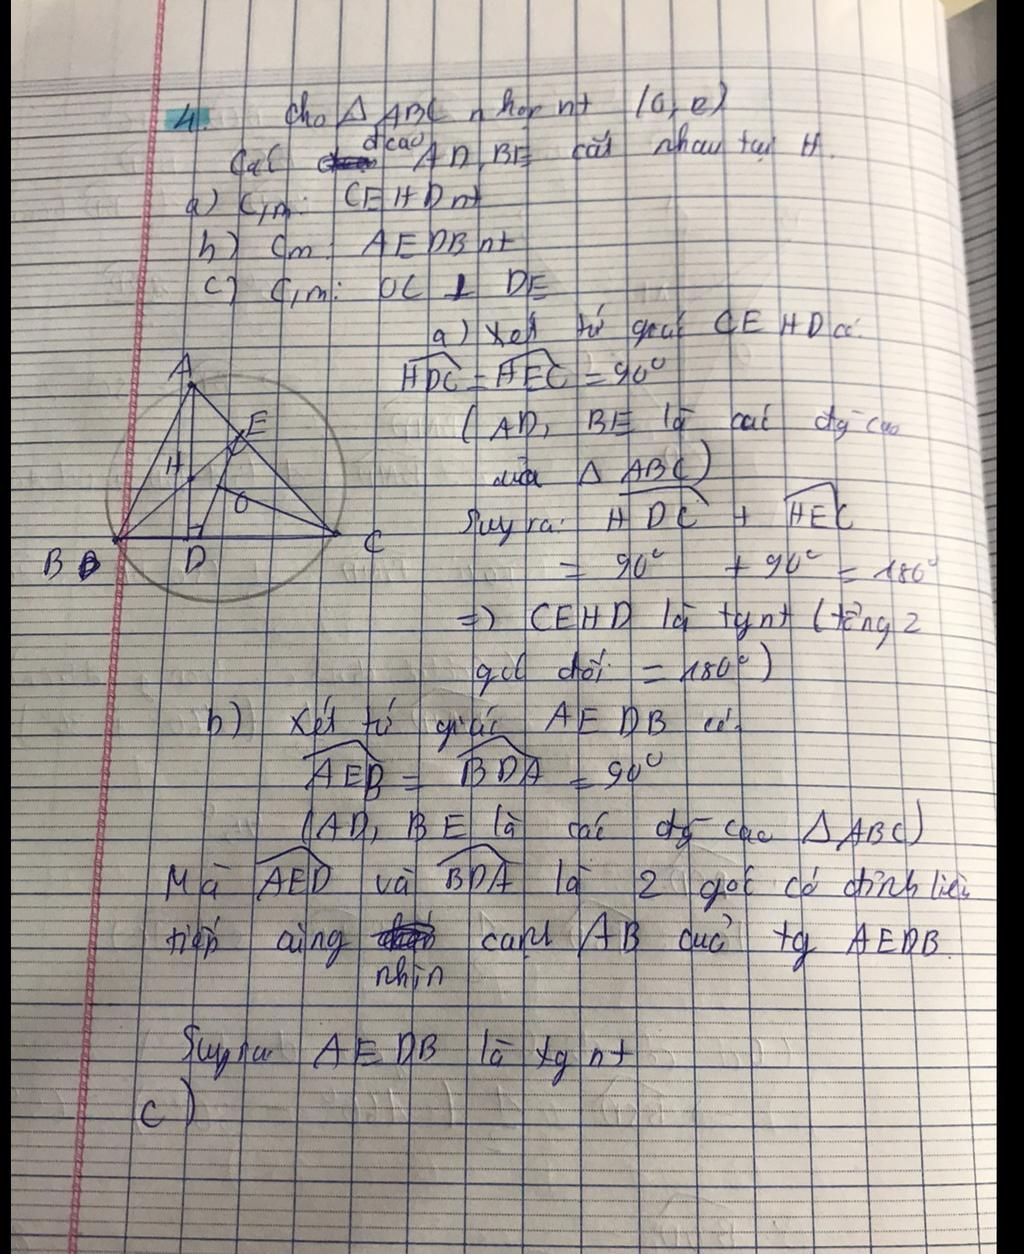 4. Cho Δ ABC nhọn nt (O, R)
Các đcao AD, BE cắt nhau tại H.
a) C,m: CEHD nt
b) Cm: AEDB nt
c) C,m: OC ⊥ DE
a) Xét tứ giác CEHD có:
HDC = HEC = 90°
(AD, BE là các đg cao
của Δ ABC)
Suy ra: HDC + HEC
= 90° + 90° = 180°
=> CEHD là tg nt (tổng 2
góc đối = 180°)
A
E
H
O
B
D
C
b) Xét tứ giác AEDB có:
AEB = BDA = 90°
(AD, BE là các đg cao Δ ABC)
Mà AED và BDA là 2 góc có đỉnh liên
tiếp cùng nhìn cạnh AB của tg AEDB.
Suy ra AEDB là tg nt
c)